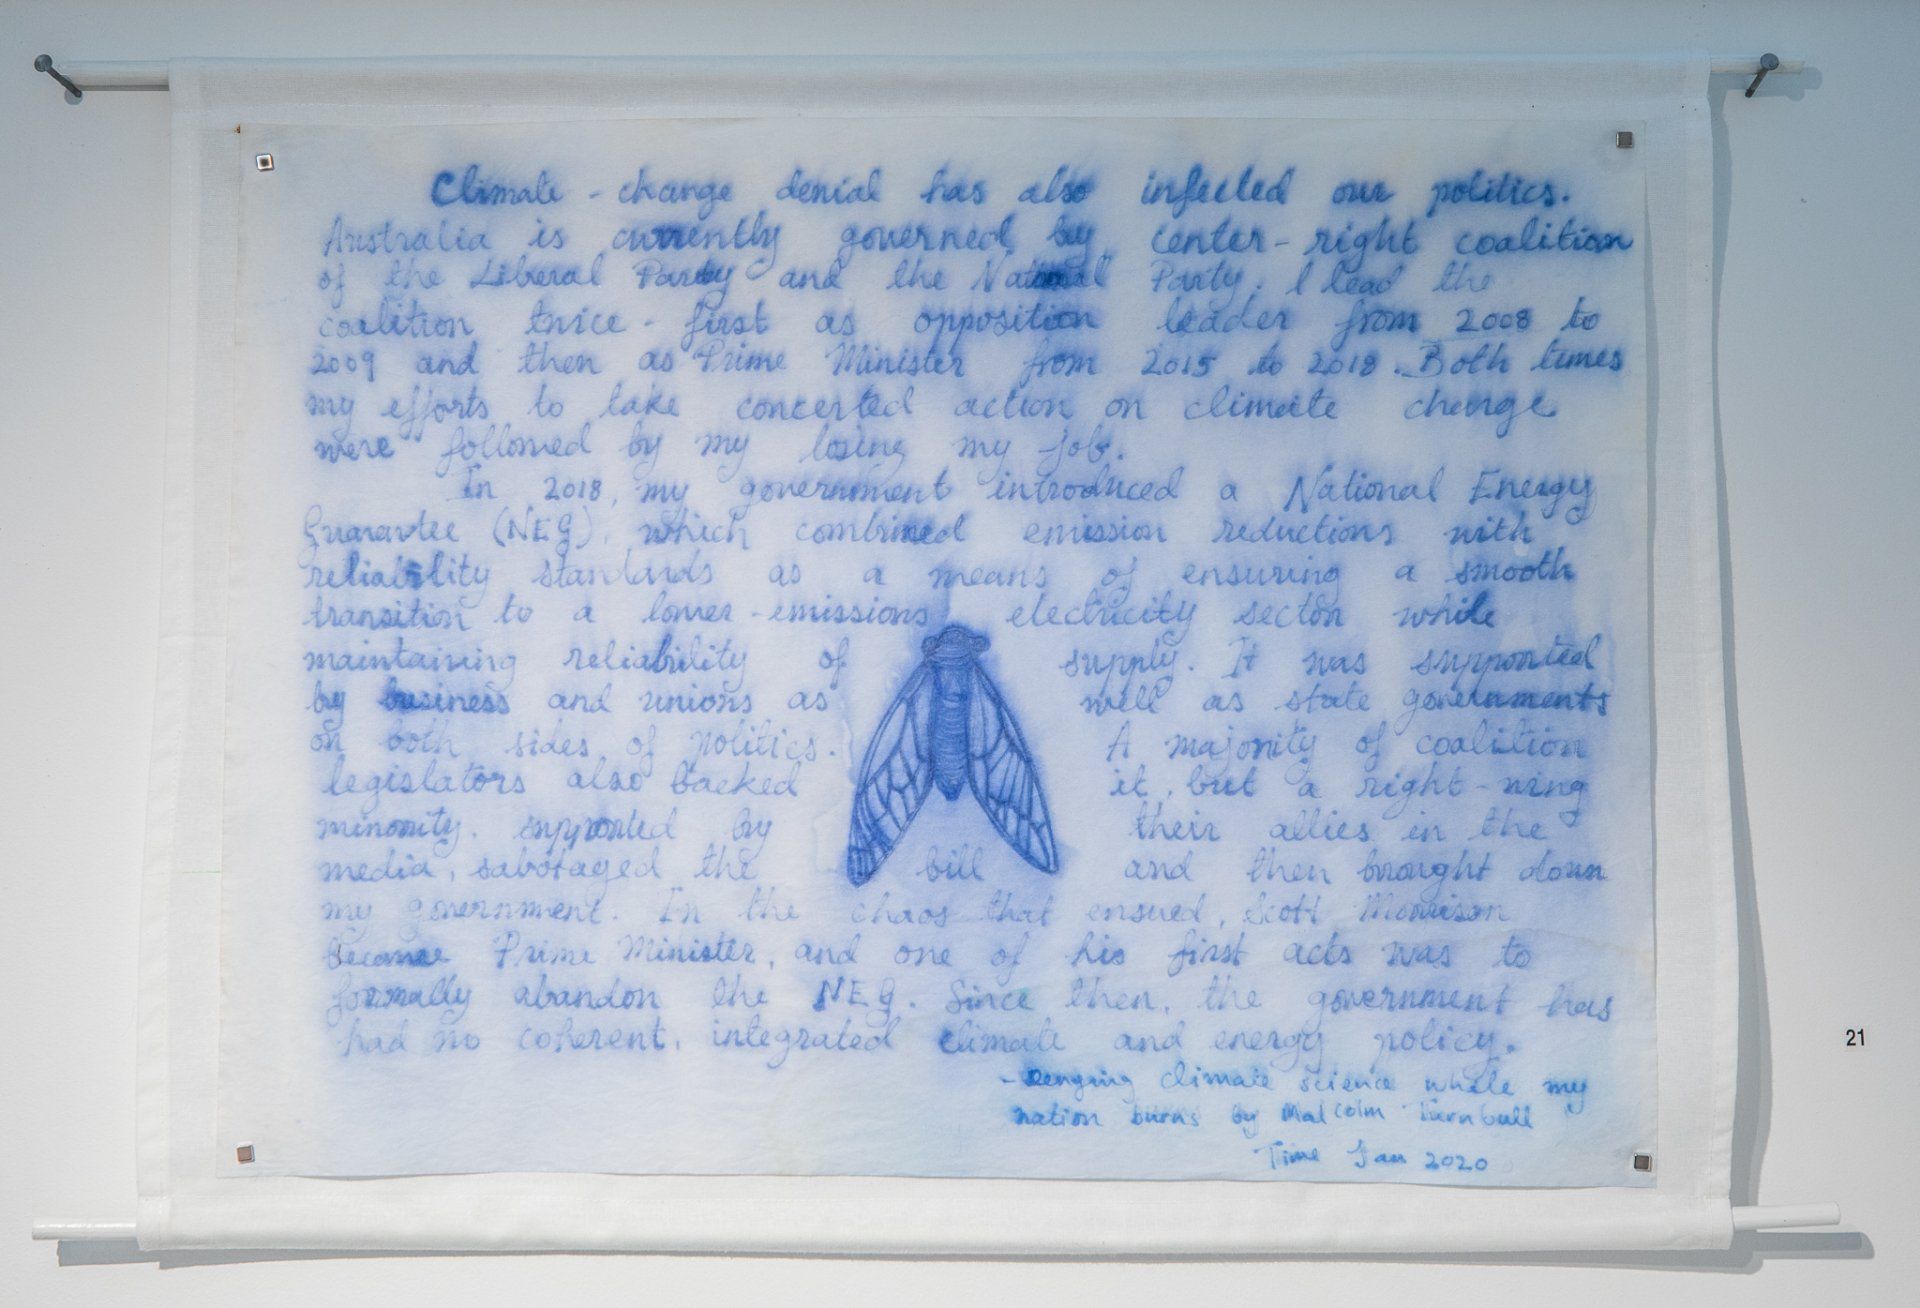 Climate - change denial has also infected our politics.
Australia is currently governed by center-right coalition
of the Liberal Party and the National Party. I lead the
coalition twice - first as opposition leader from 2008 to
2009 and then as Prime Minister from 2015 to 2018. Both times
my efforts to take concerted action on climate change
were followed by my losing my job.
In 2018, my government introduced a National Energy
Guarantee (NEG), which combined emission reductions with
reliability standards as a means of ensuring a smooth
transition to a lower-emissions electricity sector while
maintaining reliability of supply. It was supported
by business and unions as well as state governments
on both sides of politics. A majority of coalition
legislators also backed it, but a right-wing
minority. supported by their allies in the
media, sabotaged the bill and then brought down
my government. In the chaos that ensued, Scott Morrison
became Prime Minister, and one of his first acts was to
formally abandon the NEG. Since then, the government has
had no coherent, integrated climate and energy policy.
- climate science while my
nation burns by Malcolm Turnbull
Time Jan 2020
21